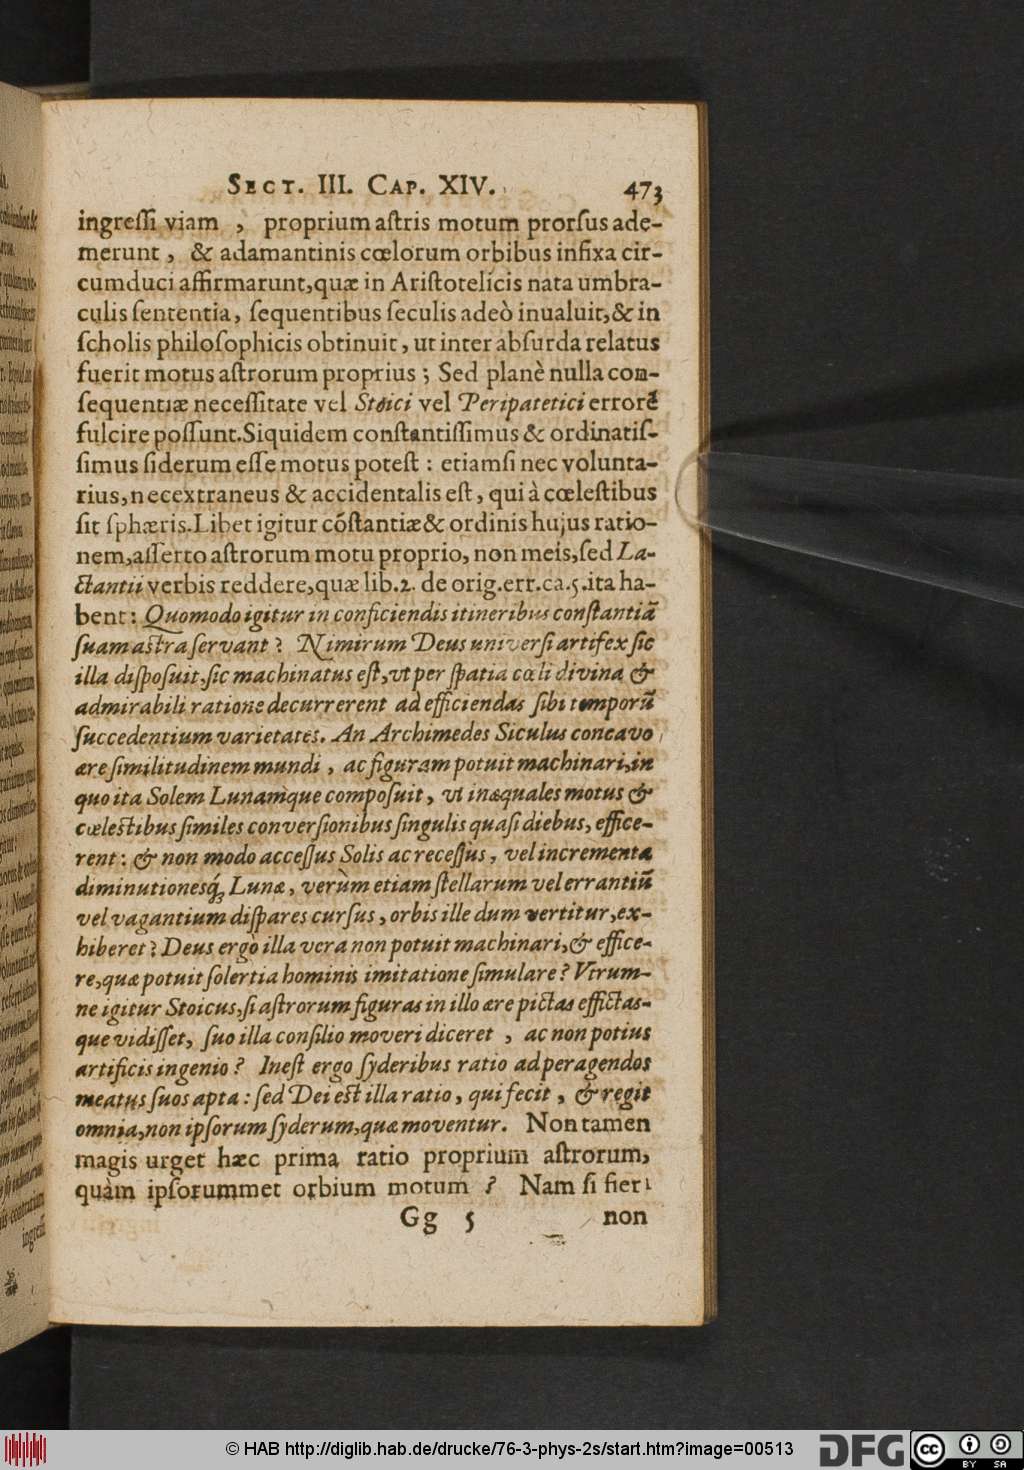 SECT. III. CAP. XIV. 473
ingreſſi viam , proprium aſtris motum prorſus ade-
merunt , & adamantinis cœlorum orbibus infixa cir-
cumduci affirmarunt,quæ in Ariſtotelicis nata umbra-
culis ſententia, ſequentibus ſeculis adeò inualuit,& in
ſcholis philoſophicis obtinuit, ut inter abſurda relatus
fuerit motus aſtrorum proprius ; Sed planè nulla con-
ſequentiæ neceſſitate vel Stoici vel Peripatetici errorē
fulcire poſſunt.Siquidem conſtantiſſimus & ordinatiſ-
ſimus ſiderum eſſe motus poteſt : etiamſi nec volunta-
rius,nec extraneus & accidentalis eſt, qui à cœleſtibus
ſit ſphæris.Libet igitur cóſtantiæ & ordinis hujus ratio-
nem,aſſerto aſtrorum motu proprio, non meis,ſed La-
ctantii verbis reddere,quæ lib.2. de orig.err.ca.5.ita ha-
bent : Quomodo igitur in conficiendis itineribus conſtantiā
ſuam aſtra ſervant ? Nimirum Deus univerſi artifex ſic
illa diſpoſuit,ſic machinatus eſt,vt per ſpatia cœli divina &
admirabili ratione decurrerent ad efficiendas ſibi temporū
ſuccedentium varietates. An Archimedes Siculus concavo
ære ſimilitudinem mundi , ac figuram potuit machinari,in
quo ita Solem Lunamque compoſuit, vt inæquales motus &
cœleſtibus ſimiles converſionibus ſingulis quaſi diebus, effice-
rent : & non modo acceſſus Solis ac receſſus, vel incrementa
diminutionesq́; Lunæ, verùm etiam ſtellarum vel errantiū
vel vagantium diſpares curſus, orbis ille dum vertitur,ex-
hiberet ? Deus ergò illa vera non potuit machinari,& effice-
re,quæ potuit ſolertia hominis imitatione ſimulare ? Vtrum-
ne igitur Stoicus,ſi aſtrorum figuras in illo ære pictas effictas-
que vidiſſet, ſuo illa conſilio moveri diceret , ac non potius
artificis ingenio ? Ineſt ergo ſyderibus ratio ad peragendos
meatus ſuos apta : ſed Dei eſt illa ratio, qui fecit , & regit
omnia,non ipſorum ſyderum,quæ moventur. Non tamen
magis urget hæc prima ratio proprium aſtrorum,
quàm ipſorummet orbium motum ? Nam ſi fieri
Gg 5 non
© HAB http://diglib.hab.de/drucke/76-3-phys-2s/start.htm?image=00513
DFG cc BY SA